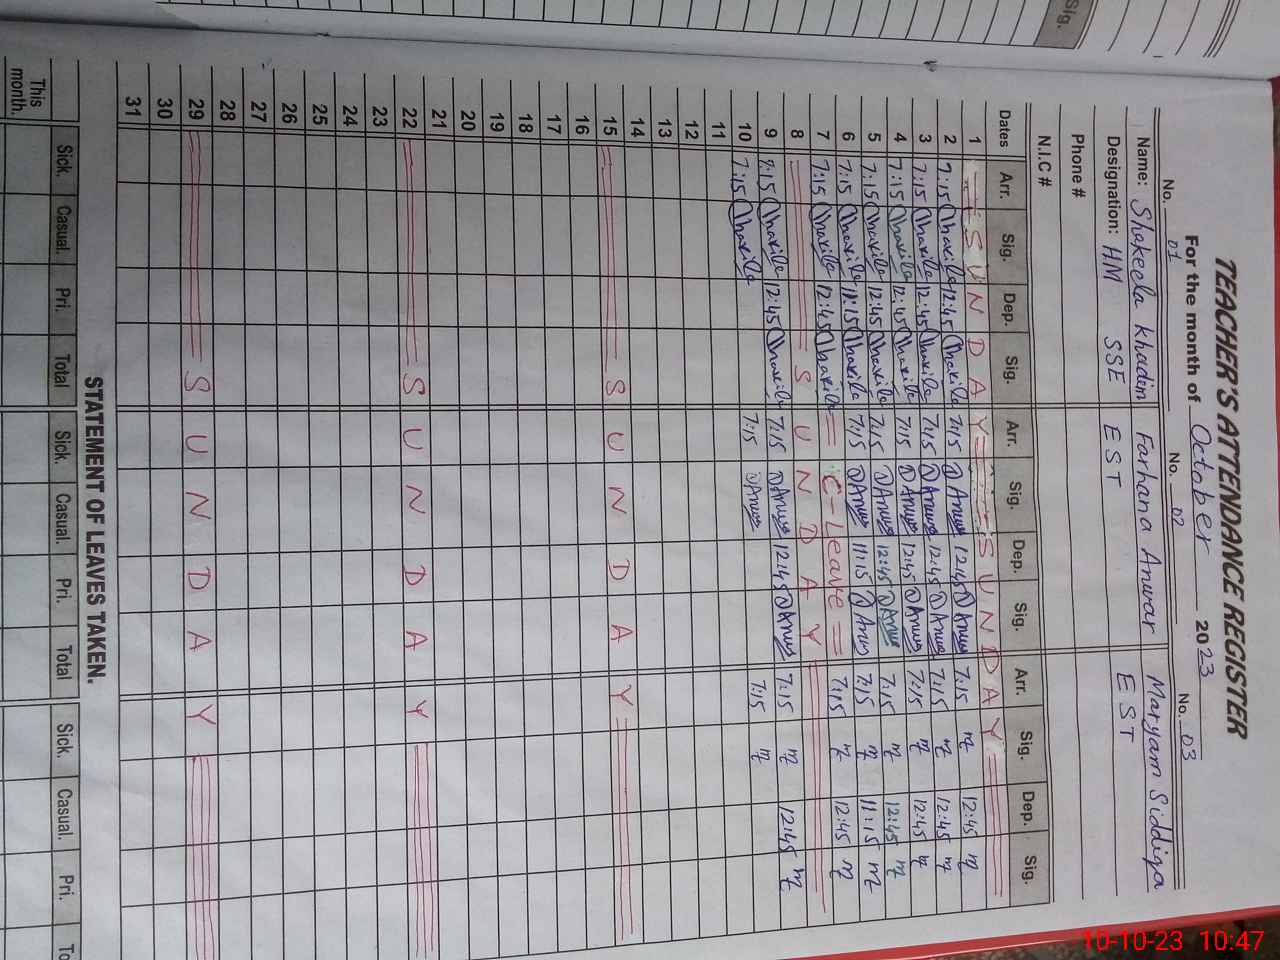 Sig.
TEACHER'S ATTENDANCE REGISTER
For the month of October 2023
No. 01 No. 02 No. 03
Name: Shakeela Khadim Farhana Anwar Maryam Siddiqa
Designation: HM SSE EST EST
Phone #
N.I.C #
Dates Arr. Sig. Dep. Sig. Arr. Sig. Dep. Sig. Arr. Sig. Dep. Sig.
1 SUNDAY SUNDAY
2 7:15 12:45 7:15 Anwar 12:45 Anwar 7:15 12:45
3 7:15 12:45 7:15 Anwar 12:45 Anwar 7:15 12:45
4 7:15 12:45 7:15 Anwar 12:45 Anwar 7:15 12:45
5 7:15 12:45 7:15 Anwar 12:45 Anwar 7:15 12:45
6 7:15 11:15 7:15 Anwar 11:15 Anwar 7:15 11:15
7 7:15 12:45 C-Leave 7:15 12:45
8 SUNDAY
9 7:15 12:45 7:15 Anwar 12:45 Anwar 7:15 12:45
10 7:15 7:15 Anwar 7:15
11
12
13
14
15 SUNDAY
16
17
18
19
20
21
22 SUNDAY
23
24
25
26
27
28
29 SUNDAY
30
31
STATEMENT OF LEAVES TAKEN.
Sick. Casual. Pri. Total Sick. Casual. Pri. Total Sick. Casual. Pri. To
This month.
10-10-23 10:47